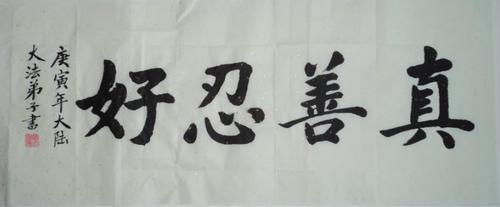 真善忍好
庚寅年大陆
大法弟子書